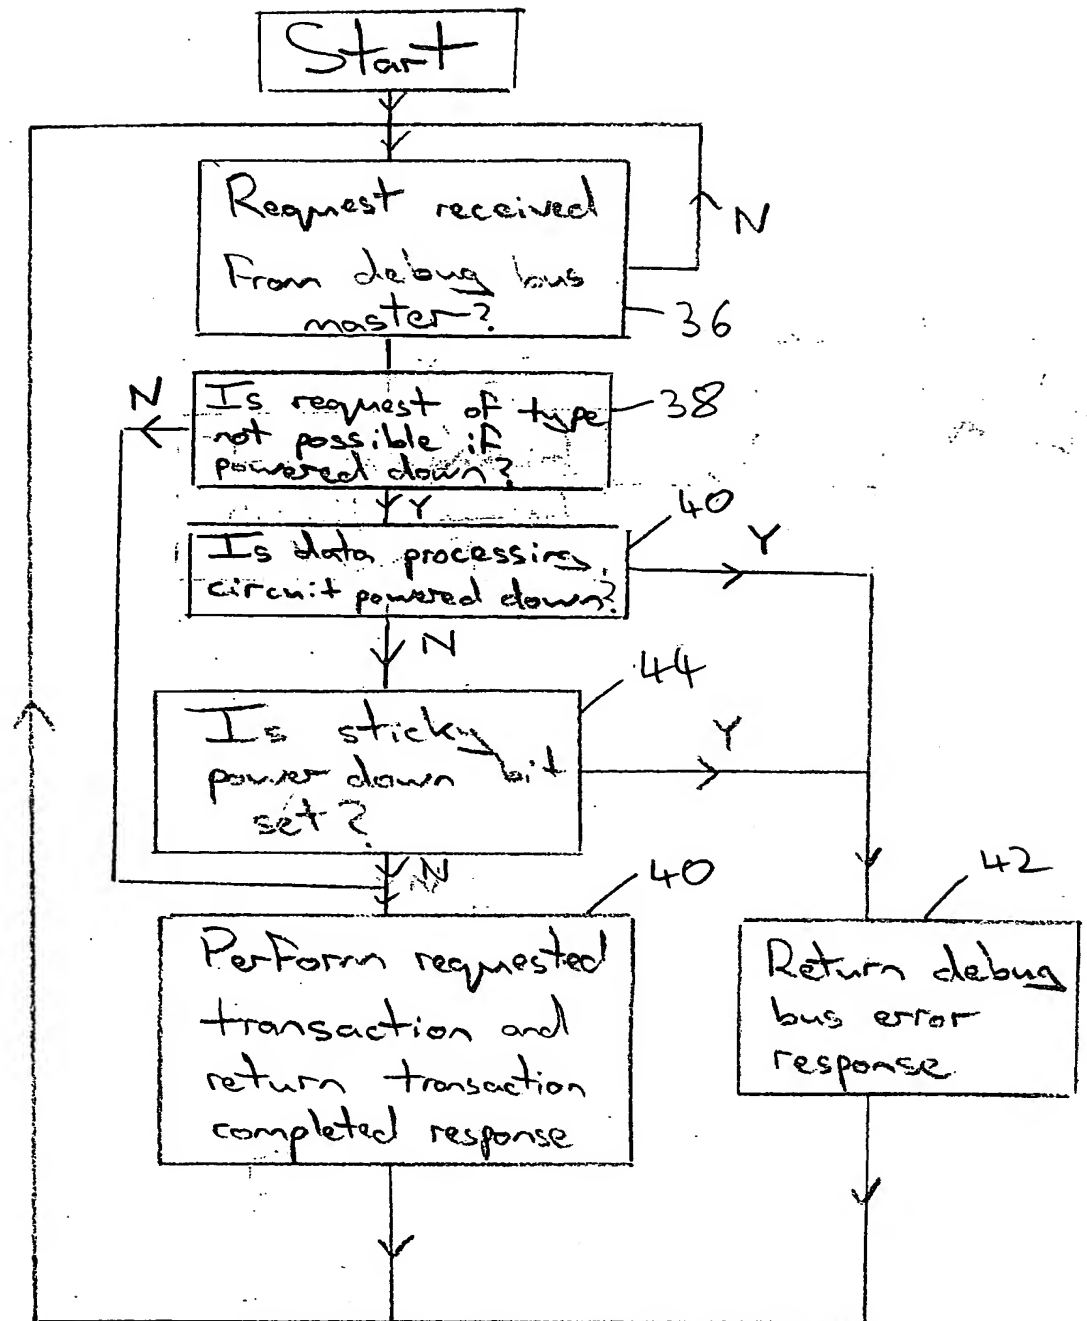 Start
Request received
From debug bus
master?
N
36
N
Is request of type
not possible if
powered down?
38
Y
Is data processing
circuit powered down?
40
Y
N
Is sticky
power down bit
set?
44
Y
N
Perform requested
transaction and
return transaction
completed response
40
Return debug
bus error
response
42